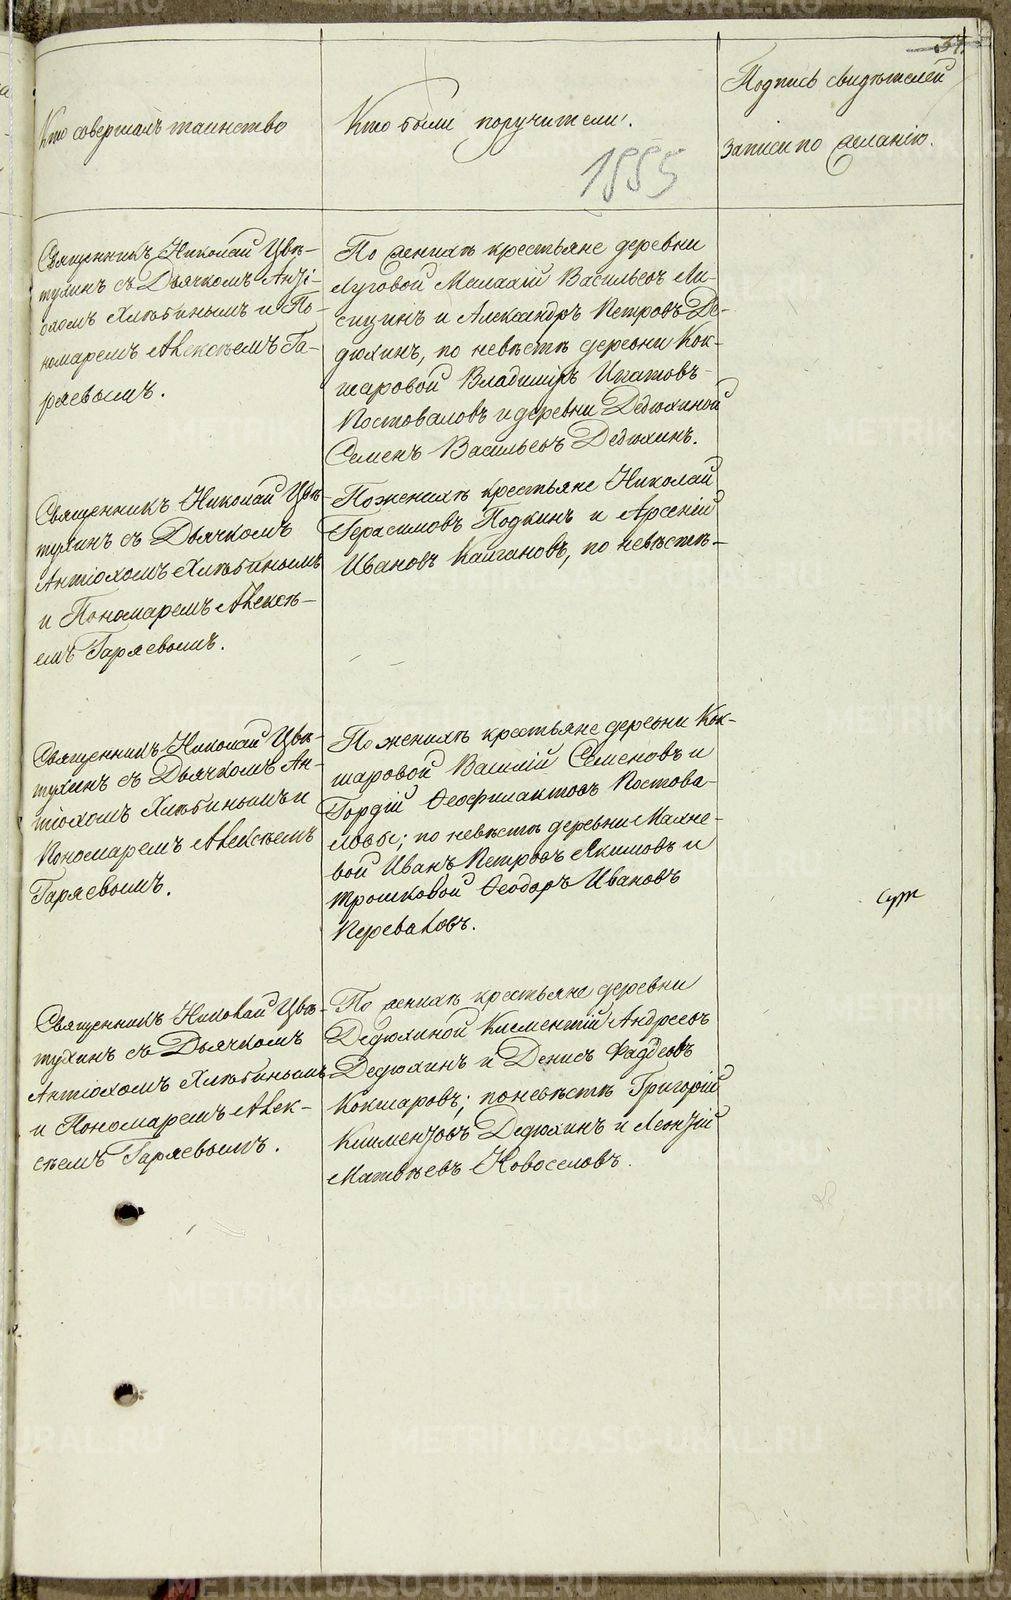 Кто совершалъ таинство
Кто были поручители.
Подпись свидѣтелей
записи по желанію.
1885
Священникъ Николай Цвѣ-
тухинъ съ Дьячкомъ Анті-
охомъ Хлѣбинымъ и По-
номаремъ Алексѣемъ Га-
ряевымъ.
По женихѣ крестьяне деревни
Луговой Малахій Васильевъ Ли-
сицинъ и Александръ Петровъ Де-
дюхинъ, по невѣстѣ деревни Кок-
шаровой Владиміръ Ипатовъ
Постоваловъ и деревни Дедюхиной
Семенъ Васильевъ Дедюхинъ.
Священникъ Николай Цвѣ-
тухинъ съ Дьячкомъ
Антіохомъ Хлѣбинымъ
и Пономаремъ Алексѣ-
емъ Гаряевымъ.
По женихѣ крестьяне Николай
Герасимовъ Подкинъ и Арсеній
Ивановъ Кайгановъ, по невѣстѣ-
Священникъ Николай Цвѣ-
тухинъ съ Дьячкомъ Ан-
тіохомъ Хлѣбинымъ и
Пономаремъ Алексѣемъ
Гаряевымъ.
По женихѣ крестьяне деревни Кок-
шаровой Василій Семеновъ и
Гордій Ѳеофилактовъ Постова-
ловы; по невѣстѣ деревни Махне-
вой Иванъ Петровъ Якимовъ и
Трошковой Ѳеодоръ Ивановъ
Переваловъ.
Священникъ Николай Цвѣ-
тухинъ съ Дьячкомъ
Антіохомъ Хлѣбинымъ
и Пономаремъ Алек-
сѣемъ Гаряевымъ.
По женихѣ крестьяне деревни
Дедюхиной Климентій Андреевъ
Дедюхинъ и Денисъ Фаддеевъ
Кокшаровъ; по невѣстѣ Григорій
Климентовъ Дедюхинъ и Леонтій
Матвѣевъ Новоселовъ.